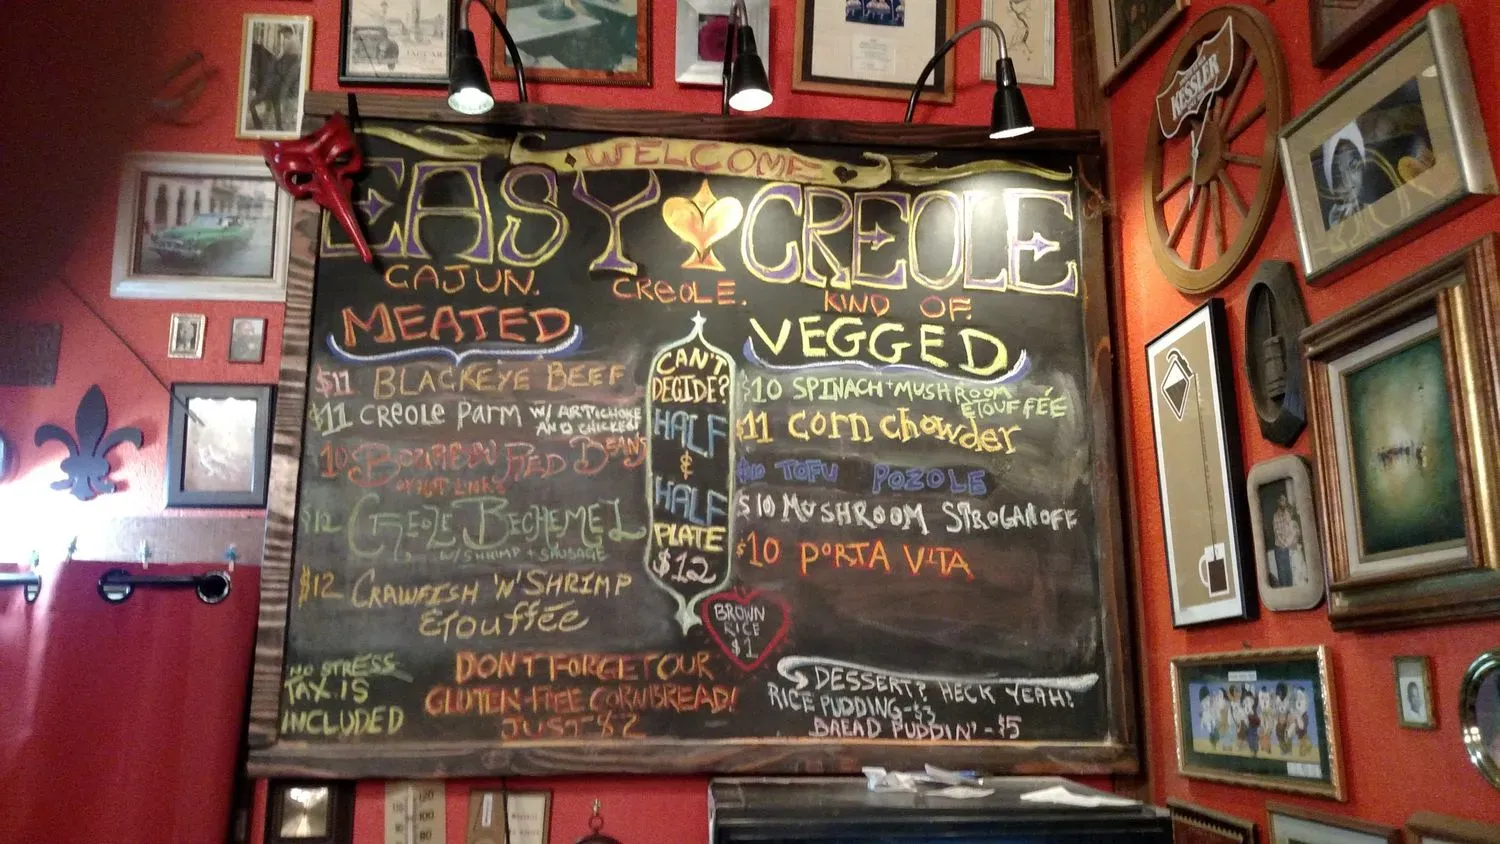 WELCOME
EASY CREOLE
CAJUN. CREOLE. KIND OF.
MEATED
$11 BLACKEYE BEEF
$11 CREOLE PARM W/ ARTICHOKE
AND CHICKEN
10 BOURBON RED BEANS
$12 CREOLE BECHEMEL
W/ SHRIMP + SAUSAGE
$12 CRAWFISH 'N' SHRIMP
ÉTOUFFÉE
CAN'T
DECIDE?
HALF
&
HALF
PLATE
$12
VEGGED
$10 SPINACH + MUSHROOM
ÉTOUFFÉE
$11 CORN CHOWDER
$10 TOFU POZOLE
$10 MUSHROOM STROGANOFF
$10 PORTA VITA
BROWN
RICE
$1
NO STRESS
TAX IS
INCLUDED
DON'T FORGET OUR
GLUTEN-FREE CORNBREAD!
JUST $2
DESSERT? HECK YEAH!
RICE PUDDING-$3
BREAD PUDDIN'-$5
KESSLER
JAGUAR
120
100
80